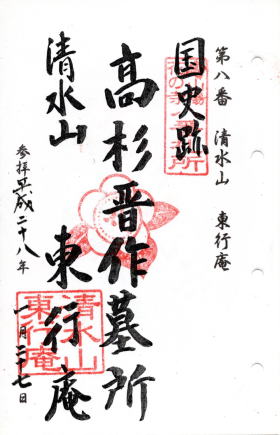 第八番 清水山 東行庵
国史跡
高杉晋作墓所
清水山 東行庵
参拝平成二十八年 一月二十七日
清水山
東行庵